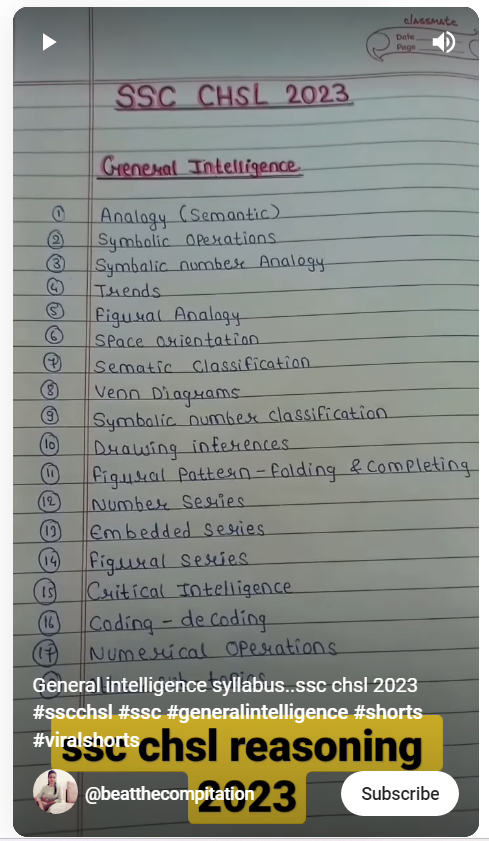 classmate
Date
Page
SSC CHSL 2023
General Intelligence
① Analogy (Semantic)
② Symbolic operations
③ Symbolic number Analogy
④ Trends
⑤ Figural Analogy
⑥ Space orientation
⑦ Sematic Classification
⑧ Venn Diagrams
⑨ Symbolic number classification
⑩ Drawing inferences
⑪ Figural Pattern-folding & completing
⑫ Number Series
⑬ Embedded Series
⑭ figural series
⑮ Critical Intelligence
⑯ Coding - de coding
⑰ Numerical Operations
General intelligence syllabus..ssc chsl 2023
#sscchsl #ssc #generalintelligence #shorts
#viralshorts
ssc chsl reasoning
2023
@beatthecompitation
Subscribe